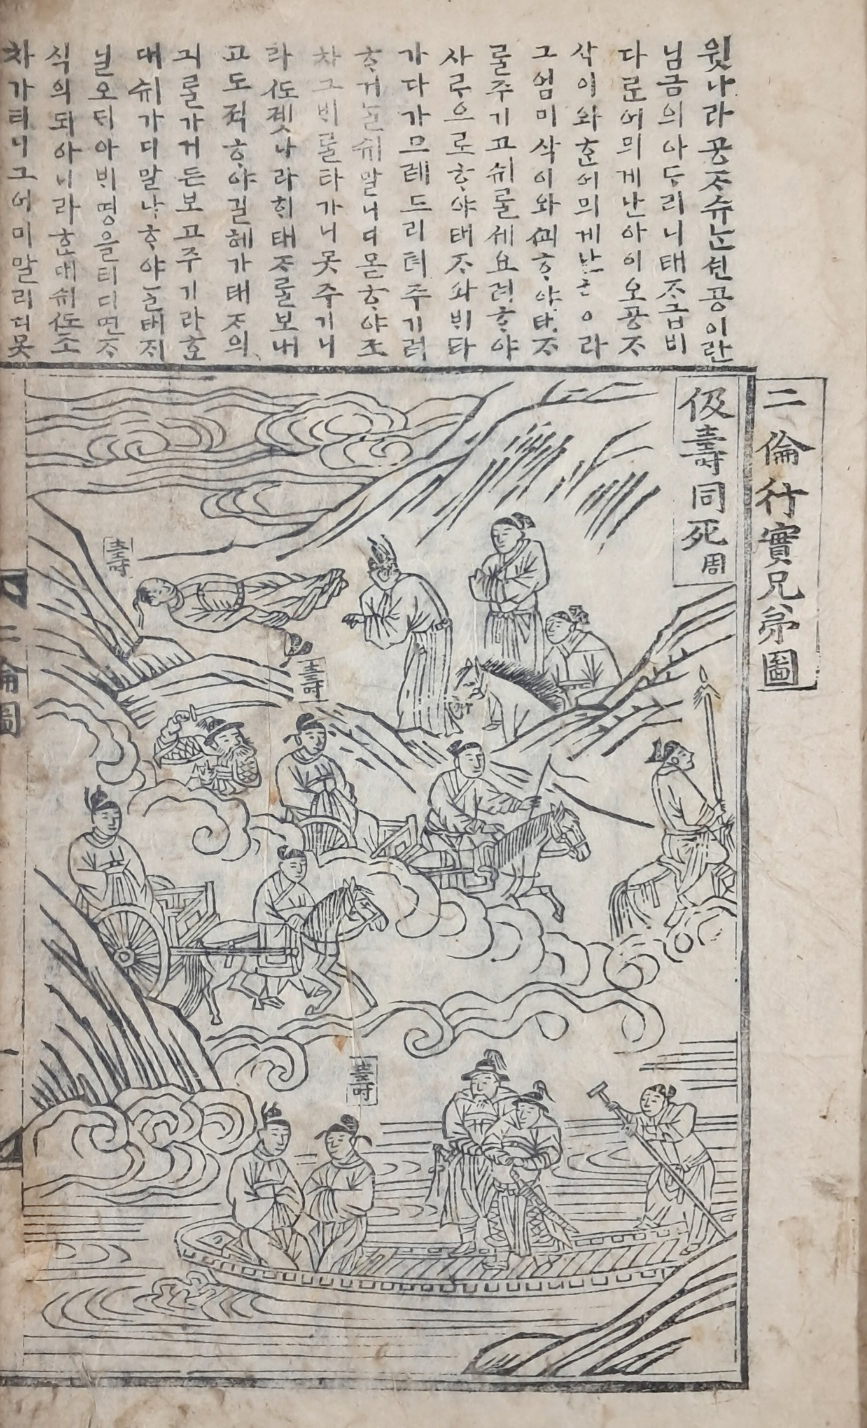 二倫行實兄弟圖
윗나라공ᄌᆞ슈ᄂᆞᆫ션공이란
님금의아ᄃᆞ리니태ᄌᆞ급비
다ᄅᆞᆫ어믜게난아이오공ᄌᆞ
삭이와ᄒᆞᆫ어믜게난
그엄미삭이와ᄭᅬᄒᆞ야태ᄌᆞ
ᄅᆞᆯ주기고쉬ᄅᆞᆯ셰요려ᄒᆞ야
사ᄅᆞ으로ᄒᆞ야태ᄌᆞ와ᄇᆡ타
가다가므레드리텨주기려
ᄒᆞ거ᄂᆞᆯ쉬말니디몯ᄒᆞ야조
차그ᄇᆡᄅᆞᆯ타가니못주기니
라ᄯᅩ졧나라ᄒᆡ태ᄌᆞᄅᆞᆯ보내
고도적ᄒᆞ야길헤가태ᄌᆞ의
긔ᄅᆞᆯ가거든보고주기라ᄒᆞᆫ
대쉬가디말나ᄒᆞ야ᄂᆞᆯ태ᄌᆡ
닐오ᄃᆡ아ᄇᆡ명을
식의되아니라ᄒᆞᆫ대쉬ᄯᅩ조
차가더니그어미말리디못
伋壽同死 周
壽
壽
壽
二倫圖
一